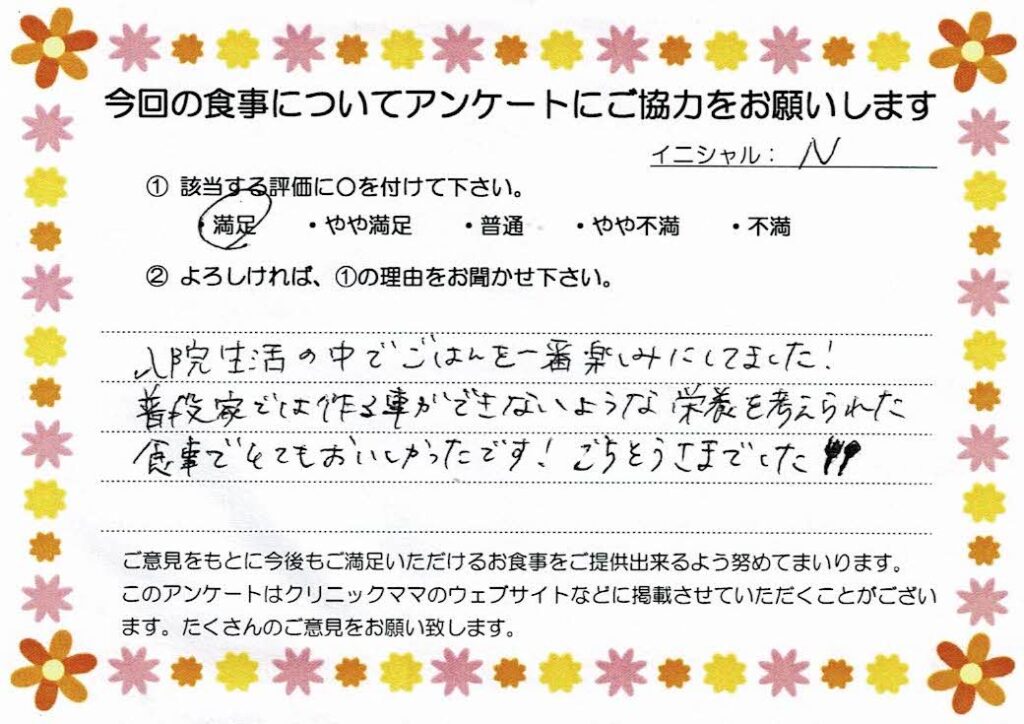 今回の食事についてアンケートにご協力をお願いします
イニシャル： N
① 該当する評価に〇を付けて下さい。
・満足 ・やや満足 ・普通 ・やや不満 ・不満
② よろしければ、①の理由をお聞かせ下さい。
入院生活の中でごはんを一番楽しみにしてました！
普段家では作る事ができないような栄養を考えられた
食事でとてもおいしかったです！ごちそうさまでした
ご意見をもとに今後もご満足いただけるお食事をご提供出来るよう努めてまいります。
このアンケートはクリニックママのウェブサイトなどに掲載させていただくことがござい
ます。たくさんのご意見をお願い致します。